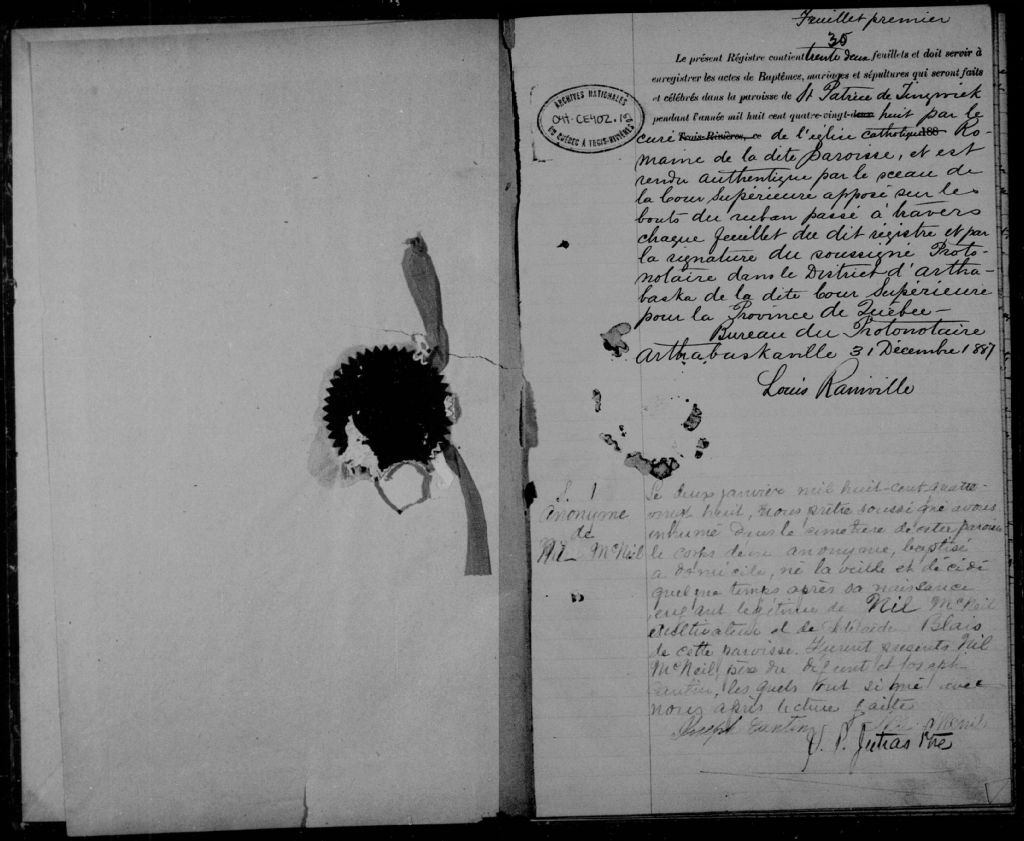 Feuillet premier
35
Le présent Régistre contient trente deux feuillets et doit servir à
enregistrer les actes de Baptêmes, mariages et sépultures qui seront faits
et célébrés dans la paroisse de St Patrice de Tingwick
pendant l'année mil huit cent quatre-vingt-deux huit par le
curé Trois-Rivières, ce de l'église catholique 188 Ro-
maine de la dite paroisse, et est
rendu authentique par le sceau de
la Cour Supérieure apposé sur les
bouts du ruban passé à travers
chaque feuillet du dit régistre et par
la signature du soussigné Proto-
notaire dans le District d'Artha-
baska de la dite Cour Supérieure
pour la Province de Québec-
Bureau du Protonotaire
Arthabaskaville 31 Décembre 1887
Louis Rainville
ARCHIVES NATIONALES
04T-CE402.15
DU QUÉBEC À TROIS-RIVIÈRES
S. 1
Anonyme
de
Nil McNeil
Le deux janvier mil huit-cent quatre-
vingt huit, nous prêtre soussigné avons
inhumé dans le cimetière de cette paroisse
le corps d'un anonyme, baptisé
a domicile, né la veille et décédé
quelque temps après sa naissance
enfant légitime de Nil McNeil
cultivateur et de Blais
de cette paroisse. Furent presents Nil
McNeil père du défunt et Joseph
lesquels ont signé avec
nous après lecture faite
Joseph
V. P. Jutras Ptre